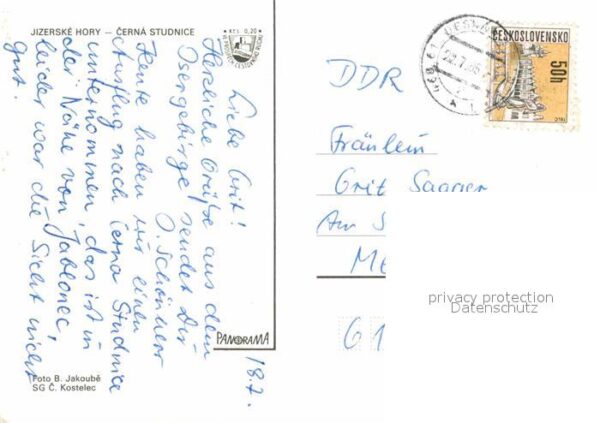 JIZERSKÉ HORY — ČERNÁ STUDNICE
KČS 0,20
Liebe Grit!
Herzliche Grüße aus dem
Isergebirge sendet Dir
D. Schönherr
Heute haben wir einen
Ausflug nach Černá Studnice
unternommen, das ist in
der Nähe von Jablonec,
leider war die Sicht nicht
gut.
18.7.
PANORAMA
Foto B. Jakoubě
SG Č. Kostelec
ČESKOSLOVENSKO
50h
DDR
Fräulein
Grit
Am S
Me
61
privacy protection
Datenschutz